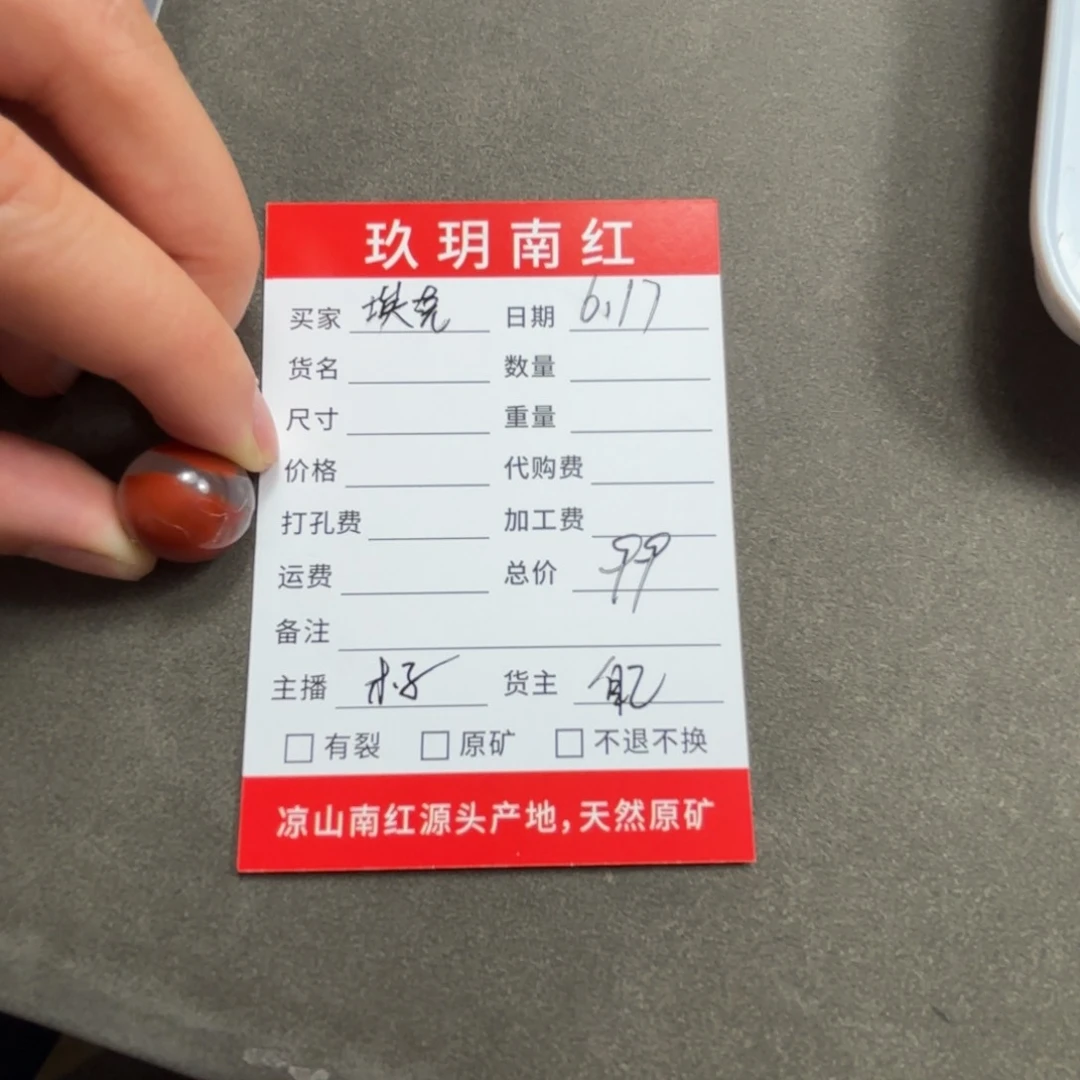 玖玥南红
买家 埃尧 日期 6.17
货名 数量
尺寸 重量
价格 代购费
打孔费 加工费
运费 总价 99
备注
主播 木子 货主
有裂 原矿 不退不换
凉山南红源头产地,天然原矿